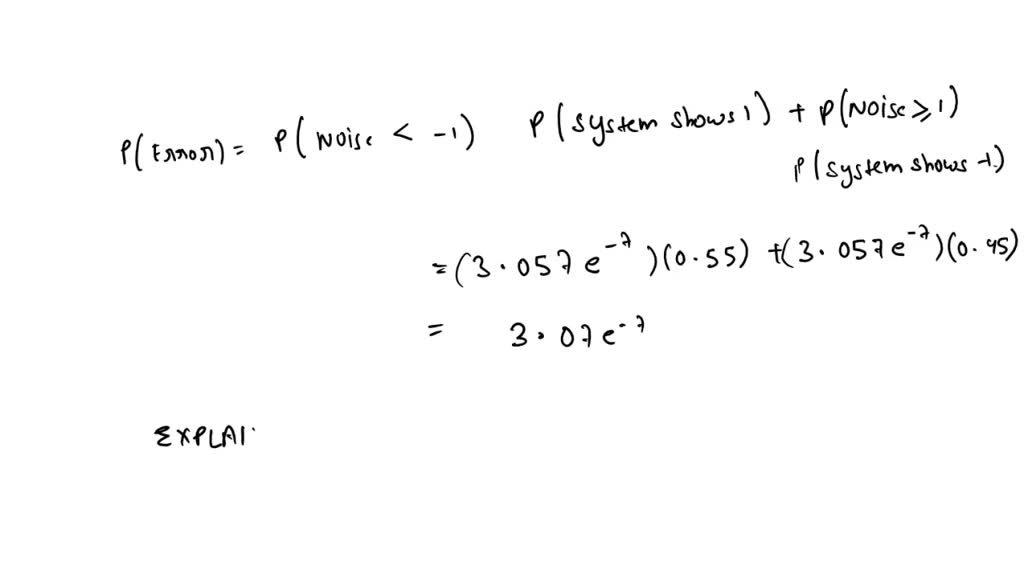 P(Error) = P(Noise < -1) P(system shows 1) + P(Noise ≥ 1)
P(system shows -1)
= (3.057e^-7)(0.55) + (3.057e^-7)(0.45)
= 3.07e^-7
EXPLAI